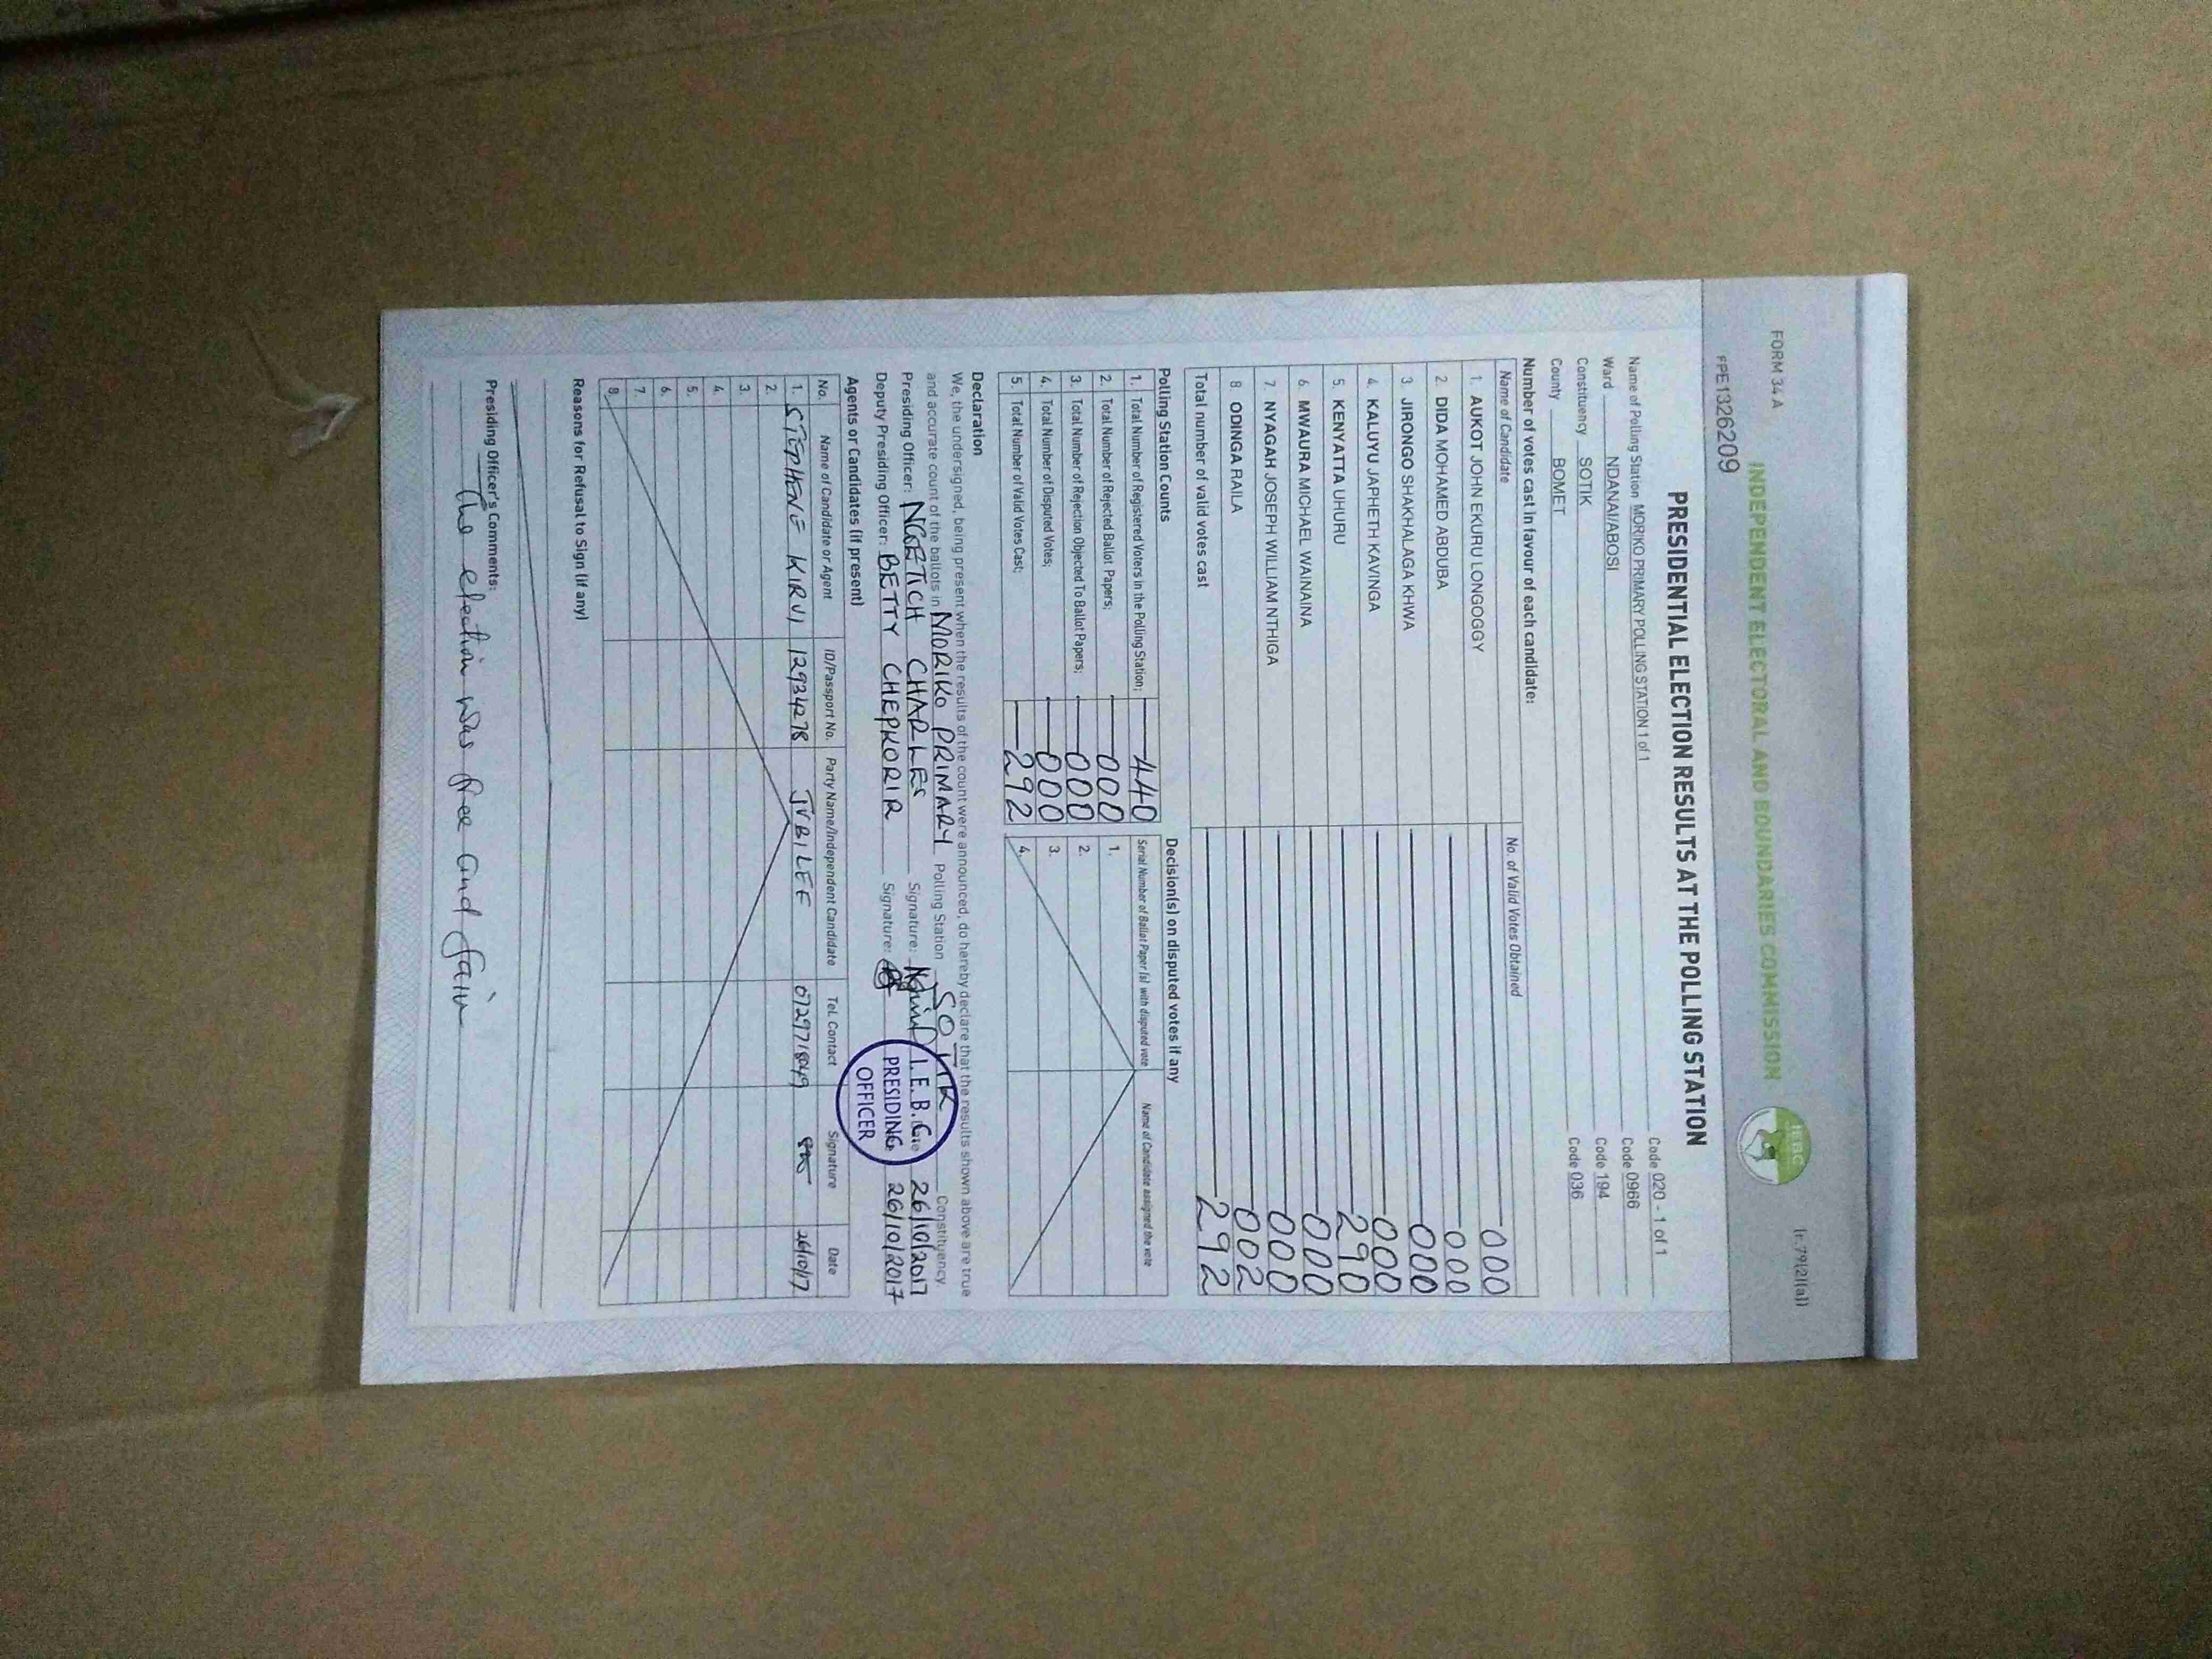 FORM 34 A
(r.79(2)(a))
INDEPENDENT ELECTORAL AND BOUNDARIES COMMISSION
IEBC
FPE1326209
PRESIDENTIAL ELECTION RESULTS AT THE POLLING STATION
Name of Polling Station MORIKO PRIMARY POLLING STATION 1 of 1 Code 020 - 1 of 1
Ward NDANAI/ABOSI Code 0966
Constituency SOTIK Code 194
County BOMET Code 036
Number of votes cast in favour of each candidate:
Name of Candidate No. of Valid Votes Obtained
1. AUKOT JOHN EKURU LONGOGGY 000
2. DIDA MOHAMED ABDUBA 000
3. JIRONGO SHAKHALAGA KHWA 000
4. KALUYU JAPHETH KAVINGA 000
5. KENYATTA UHURU 290
6. MWAURA MICHAEL WAINAINA 000
7. NYAGAH JOSEPH WILLIAM NTHIGA 000
8. ODINGA RAILA 002
Total number of valid votes cast 292
Polling Station Counts Decision(s) on disputed votes if any
1. Total Number of Registered Voters in the Polling Station; 440 Serial Number of Ballot Paper (s) with disputed vote Name of Candidate assigned the vote
2. Total Number of Rejected Ballot Papers; 000 1.
3. Total Number of Rejection Objected To Ballot Papers; 000 2.
4. Total Number of Disputed Votes; 000 3.
5. Total Number of Valid Votes Cast; 292 4.
Declaration
We, the undersigned, being present when the results of the count were announced, do hereby declare that the results shown above are true
and accurate count of the ballots in MORIKO PRIMARY Polling Station SOTIK Constituency.
Presiding Officer: NGETICH CHARLES Signature: 26/10/2017
Deputy Presiding Officer: BETTY CHEPKORIR Signature: 26/10/2017
I.E.B.C
PRESIDING
OFFICER
Agents or Candidates (if present)
No. Name of Candidate or Agent ID/Passport No. Party Name/Independent Candidate Tel. Contact Signature Date
1. STEPHENE KIRUI 12934278 JUBILEE 0729718049 26/10/17
2.
3.
4.
5.
6.
7.
8.
Reasons for Refusal to Sign (if any)
Presiding Officer's Comments:
The election was free and fair